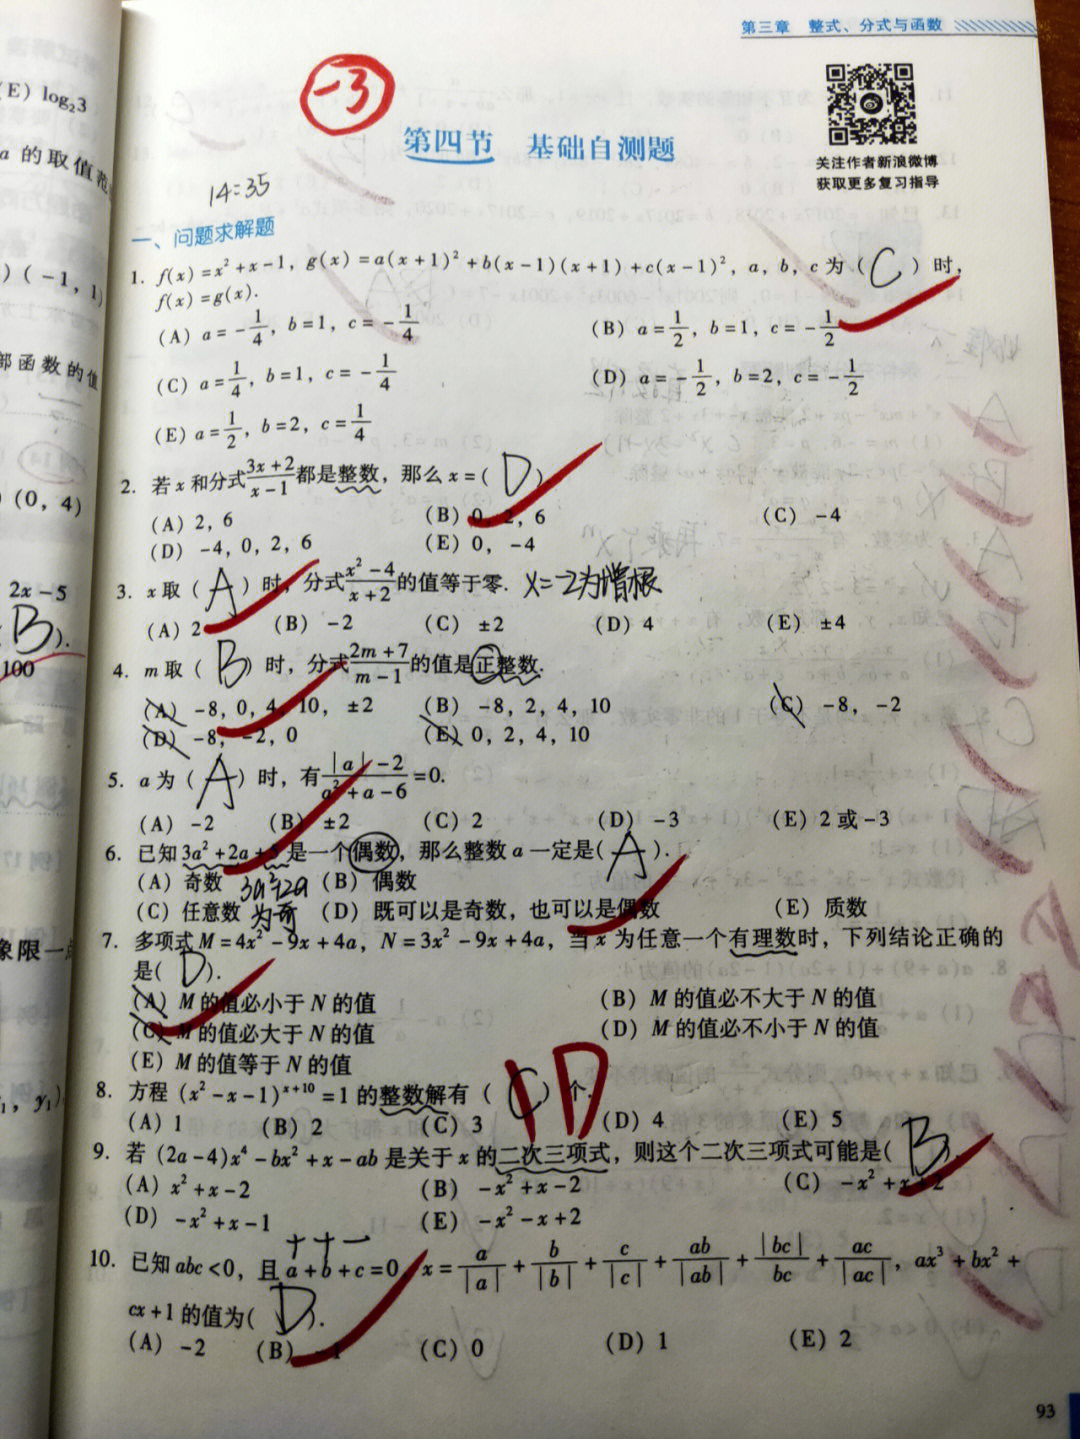 第三章 整式、分式与函数
-3
第四节 基础自测题
关注作者新浪微博
获取更多复习指导
14:35
一、问题求解题
1. f(x)=x²+x-1, g(x)=a(x+1)²+b(x-1)(x+1)+c(x-1)², a, b, c为( C )时,
f(x)=g(x).
(A) a=-1/4, b=1, c=-1/4 (B) a=1/2, b=1, c=-1/2
(C) a=1/4, b=1, c=-1/4 (D) a=-1/2, b=2, c=-1/2
(E) a=1/2, b=2, c=1/4
2. 若x和分式(3x+2)/(x-1)都是整数, 那么x=( D )
(A) 2, 6 (B) 0, 2, 6 (C) -4
(D) -4, 0, 2, 6 (E) 0, -4
3. x取( A )时, 分式(x²-4)/(x+2)的值等于零. x=-2为增根
(A) 2 (B) -2 (C) ±2 (D) 4 (E) ±4
4. m取( B )时, 分式(2m+7)/(m-1)的值是正整数.
(A) -8, 0, 4, 10, ±2 (B) -8, 2, 4, 10 (C) -8, -2
(D) -8, -2, 0 (E) 0, 2, 4, 10
5. a为( A )时, 有(|a|-2)/(a²+a-6)=0.
(A) -2 (B) ±2 (C) 2 (D) -3 (E) 2或-3
6. 已知3a²+2a+5是一个偶数, 那么整数a一定是( A ).
(A) 奇数 3a²+2a (B) 偶数
(C) 任意数 为奇 (D) 既可以是奇数, 也可以是偶数 (E) 质数
7. 多项式M=4x²-9x+4a, N=3x²-9x+4a, 当x为任意一个有理数时, 下列结论正确的
是( D ).
(A) M的值必小于N的值 (B) M的值必不大于N的值
(C) M的值必大于N的值 (D) M的值必不小于N的值
(E) M的值等于N的值
8. 方程(x²-x-1)ˣ⁺¹⁰=1的整数解有( C )个. D
(A) 1 (B) 2 (C) 3 (D) 4 (E) 5
9. 若(2a-4)x⁴-bx²+x-ab是关于x的二次三项式, 则这个二次三项式可能是( B ).
(A) x²+x-2 (B) -x²+x-2 (C) -x²+x+2
(D) -x²+x-1 (E) -x²-x+2
+ + -
10. 已知abc<0, 且a+b+c=0, x=a/|a|+b/|b|+c/|c|+ab/|ab|+|bc|/bc+ac/|ac|, ax³+bx²+
cx+1的值为( D ).
(A) -2 (B) -1 (C) 0 (D) 1 (E) 2
93
(E) log₂3
a的取值范
) (-1, 1)
部函数的值
) (0, 4)
2x-5
B ).
100
象限一点
y₁)